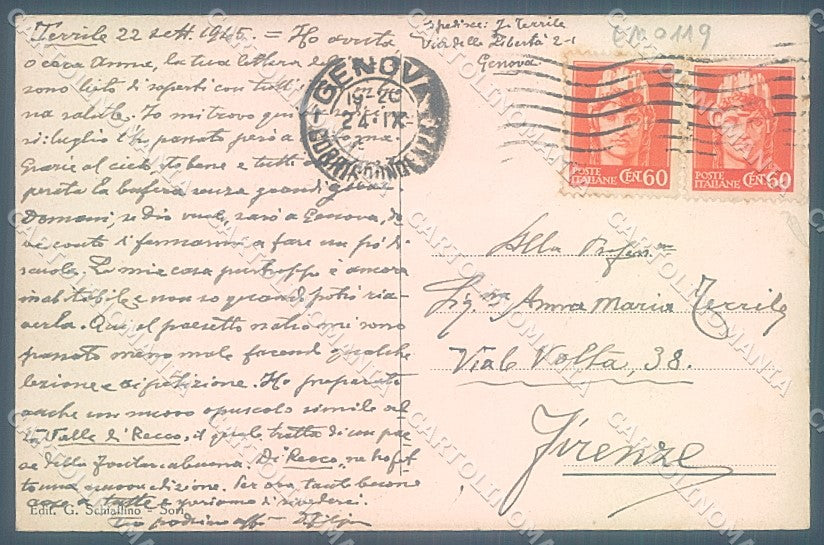 Terrile 22 sett. 1945. = Ho avuta
o cara Anna, la tua lettera e
sono lieto di saperti con tutti
na salute. Io mi trovo qui
si luglio passato però a
Grazie al cielo sto bene e tutti
la bufera senza grandi
Domani, se Dio vuole, sarò a Genova, do
ve conto di fermarmi a fare un pó di
scuola. La mia casa purtroppo è ancora
inabitabile e non so quando potrò ria-
verla. Qui al paesetto natio mi sono
passato meno male facendo qualche
lezione e ripetizione. Ho preparato
anche un nuovo opuscolo simile al
la Valle di Recco, il quale tratta di
se della Fontanabuona. Di Recco, ne ho fat
to una nuova edizione. Per ora tante buone
cose a tutte e speriamo di rivederci.
Tuo padrino aff.
Edit. G. Schiaffino - Sori
Spedisce: Terrile
Via della Libertà 2-1
Genova
0119
GENOVA
19-20
24·IX
CORRISPONDENZE
POSTE ITALIANE CENT. 60
POSTE ITALIANE CENT. 60
Alla Profess.
Sig.na Anna Maria Terrile
Viale Volta, 38.
Firenze
CARTOLINOMANIA